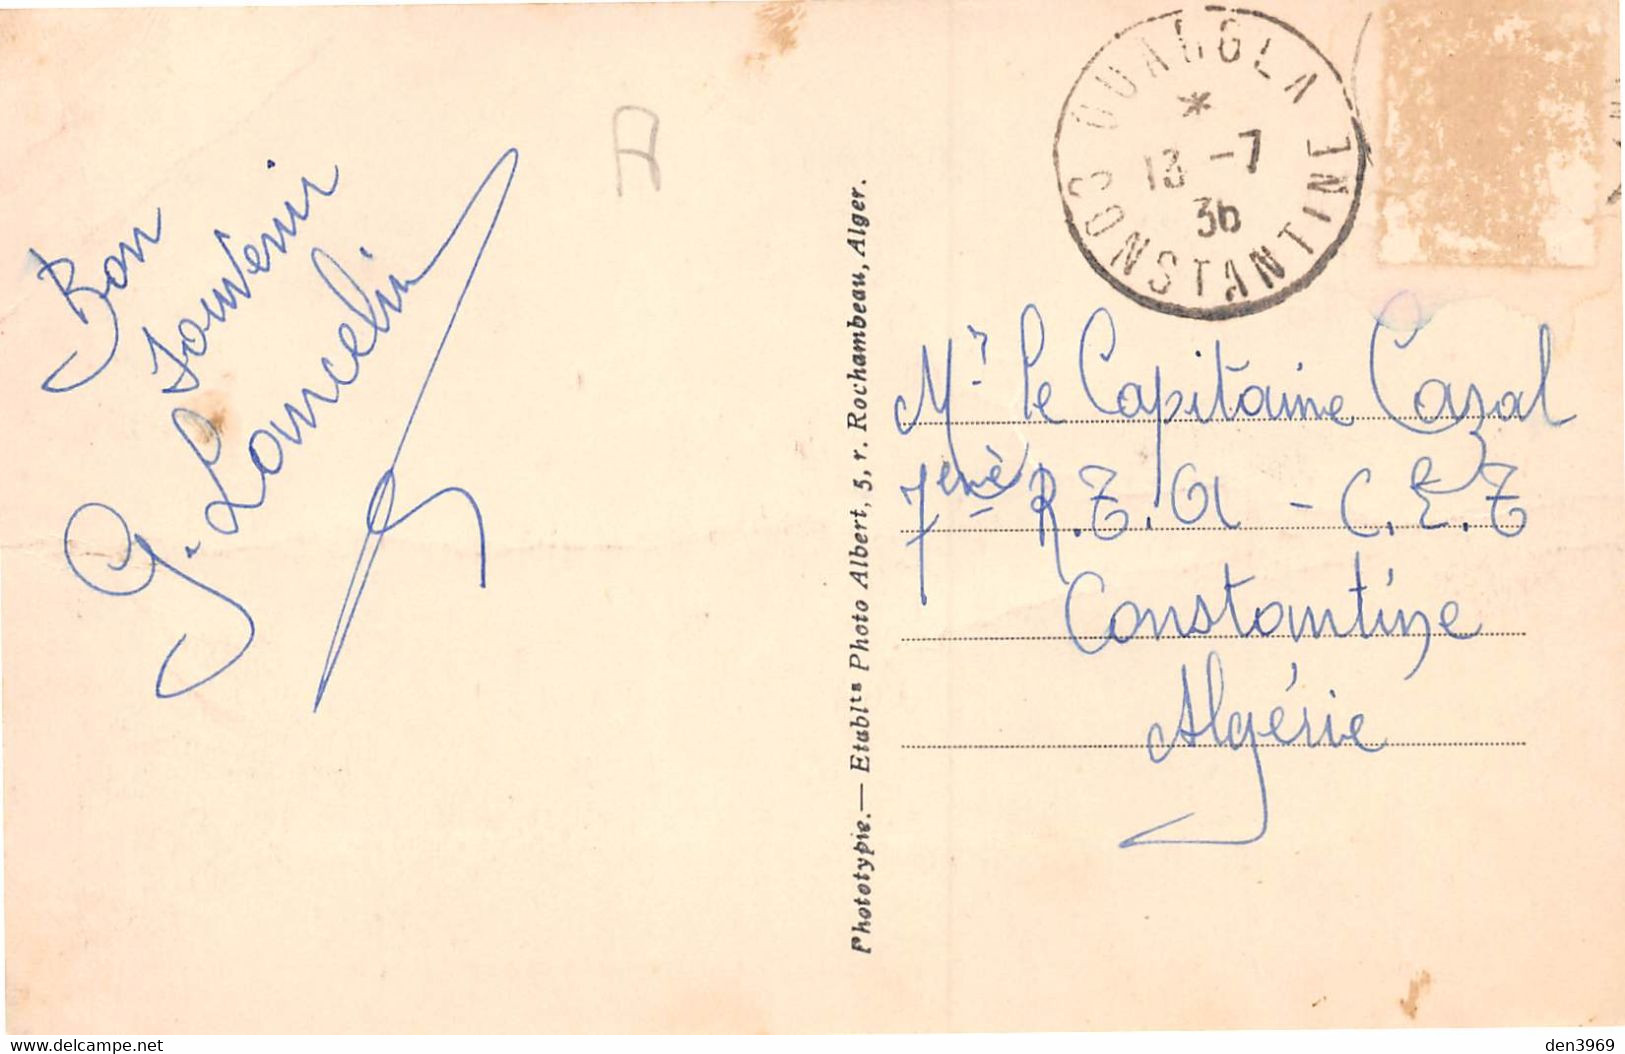 Bon
souvenir
G. Lancelin
A
Phototypie. — Etablts Photo Albert, 5, r. Rochambeau, Alger.
OUARGLA
*
13 -7
36
CONSTANTINE
Mr le Capitaine Cazal
7ème R.T.A - C.E.T
Constantine
Algérie
delcampe.net
den3969